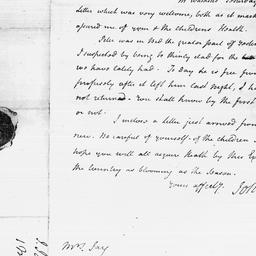 letter which was very welcome, both as it
assured me of your & the childrens Health.
Peter was in Bed the greater part of
I suspected by being to thinly clad for the
we have lately had. To Day he is free from
profusely after it left him last night, I
not returned. You shall know by the first
or not.
I inclose a letter just arrived from
new. Be careful of yourself. of the children
hope you will all acquire Health by this
the Country as blooming as the Season.
Yours affectly. John
Mrs. Jay